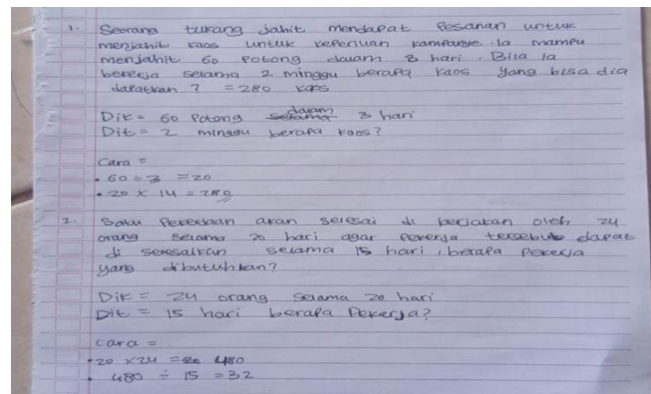 1. Seorang tukang jahit mendapat pesanan untuk
menjahit kaos untuk keperluan kampanye. Ia mampu
menjahit 60 potong dalam 3 hari. Bila Ia
bekerja selama 2 minggu berapa kaos yang bisa dia
dapatkan ? = 280 kaos
Dik = 60 Potong dalam 3 hari
Dit = 2 minggu berapa kaos?
Cara =
• 60 ÷ 3 = 20
• 20 x 14 = 280
2. Satu Pekerjaan akan selesai di kerjakan oleh 24
orang selama 20 hari agar pekerja tersebut dapat
di selesaikan selama 15 hari, berapa Pekerja
yang dibutuhkan?
Dik = 24 orang selama 20 hari
Dit = 15 hari berapa Pekerja?
cara =
• 20 x 24 = 480
• 480 ÷ 15 = 32